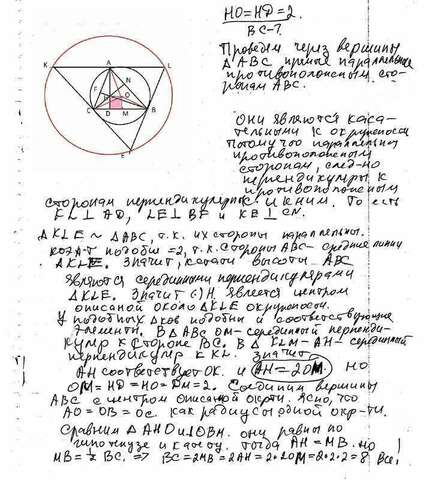 HO=HD=2.
BC-?
Проведем через вершины
Δ ABC прямые параллельные
противоположным сто-
ронам ABC.
K A L
F N
H O
C D M B
E
Они являются каса-
тельными к окружности
потому что параллельны
противоположным
сторонам, след-но
перпендикуляры к
противоположным
сторонам перпендикулярны и к ним. То есть
KL⊥AD, LE⊥BF и KE⊥CN.
ΔKLE ~ ΔABC, т.к. их стороны параллельны.
коэф-т подобия =2, т.к. стороны ABC- средние линии
ΔKLE. Значит, кстати высоты ABC
являются серединными перпендикулярами
ΔKLE. Значит (·)H является центром
описаной около ΔKLE окружности.
У подобных Δков подобны и соответствующие
элементы. В Δ ABC OM- серединный перпенди-
куляр к стороне BC. В Δ KLM - AH- серединный
перпендикуляр к KL. значит
AH соответствует OK. и AH=2OM. но
OM=HD=HO=DM=2. Соединим вершины
ABC с центром описаной окрти. Ясно, что
AO=OB=OC. как радиусы одной окр-ти.
Сравним Δ AHO и ΔOBM. они равны по
гипотенузе и катету. тогда AH=MB. но
MB=½ BC. => BC=2MB=2AH=2·2OM=2·2·2=8 Все!